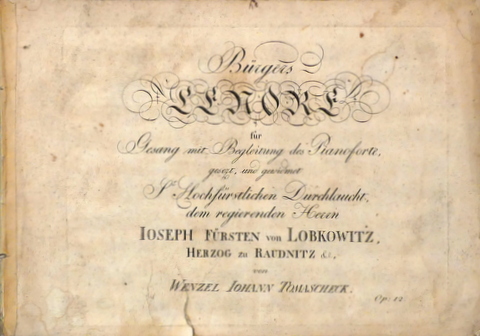 Bürgers
LENORE
für
Gesang mit Begleitung des Pianoforte,
gesezt, und gewidmet
Sr Hochfürstlichen Durchlaucht,
dem regierenden Herrn
IOSEPH FÜRSTEN von LOBKOWITZ,
HERZOG zu RAUDNITZ &c,
von
WENZEL IOHANN TOMASCHECK.
Op: 12